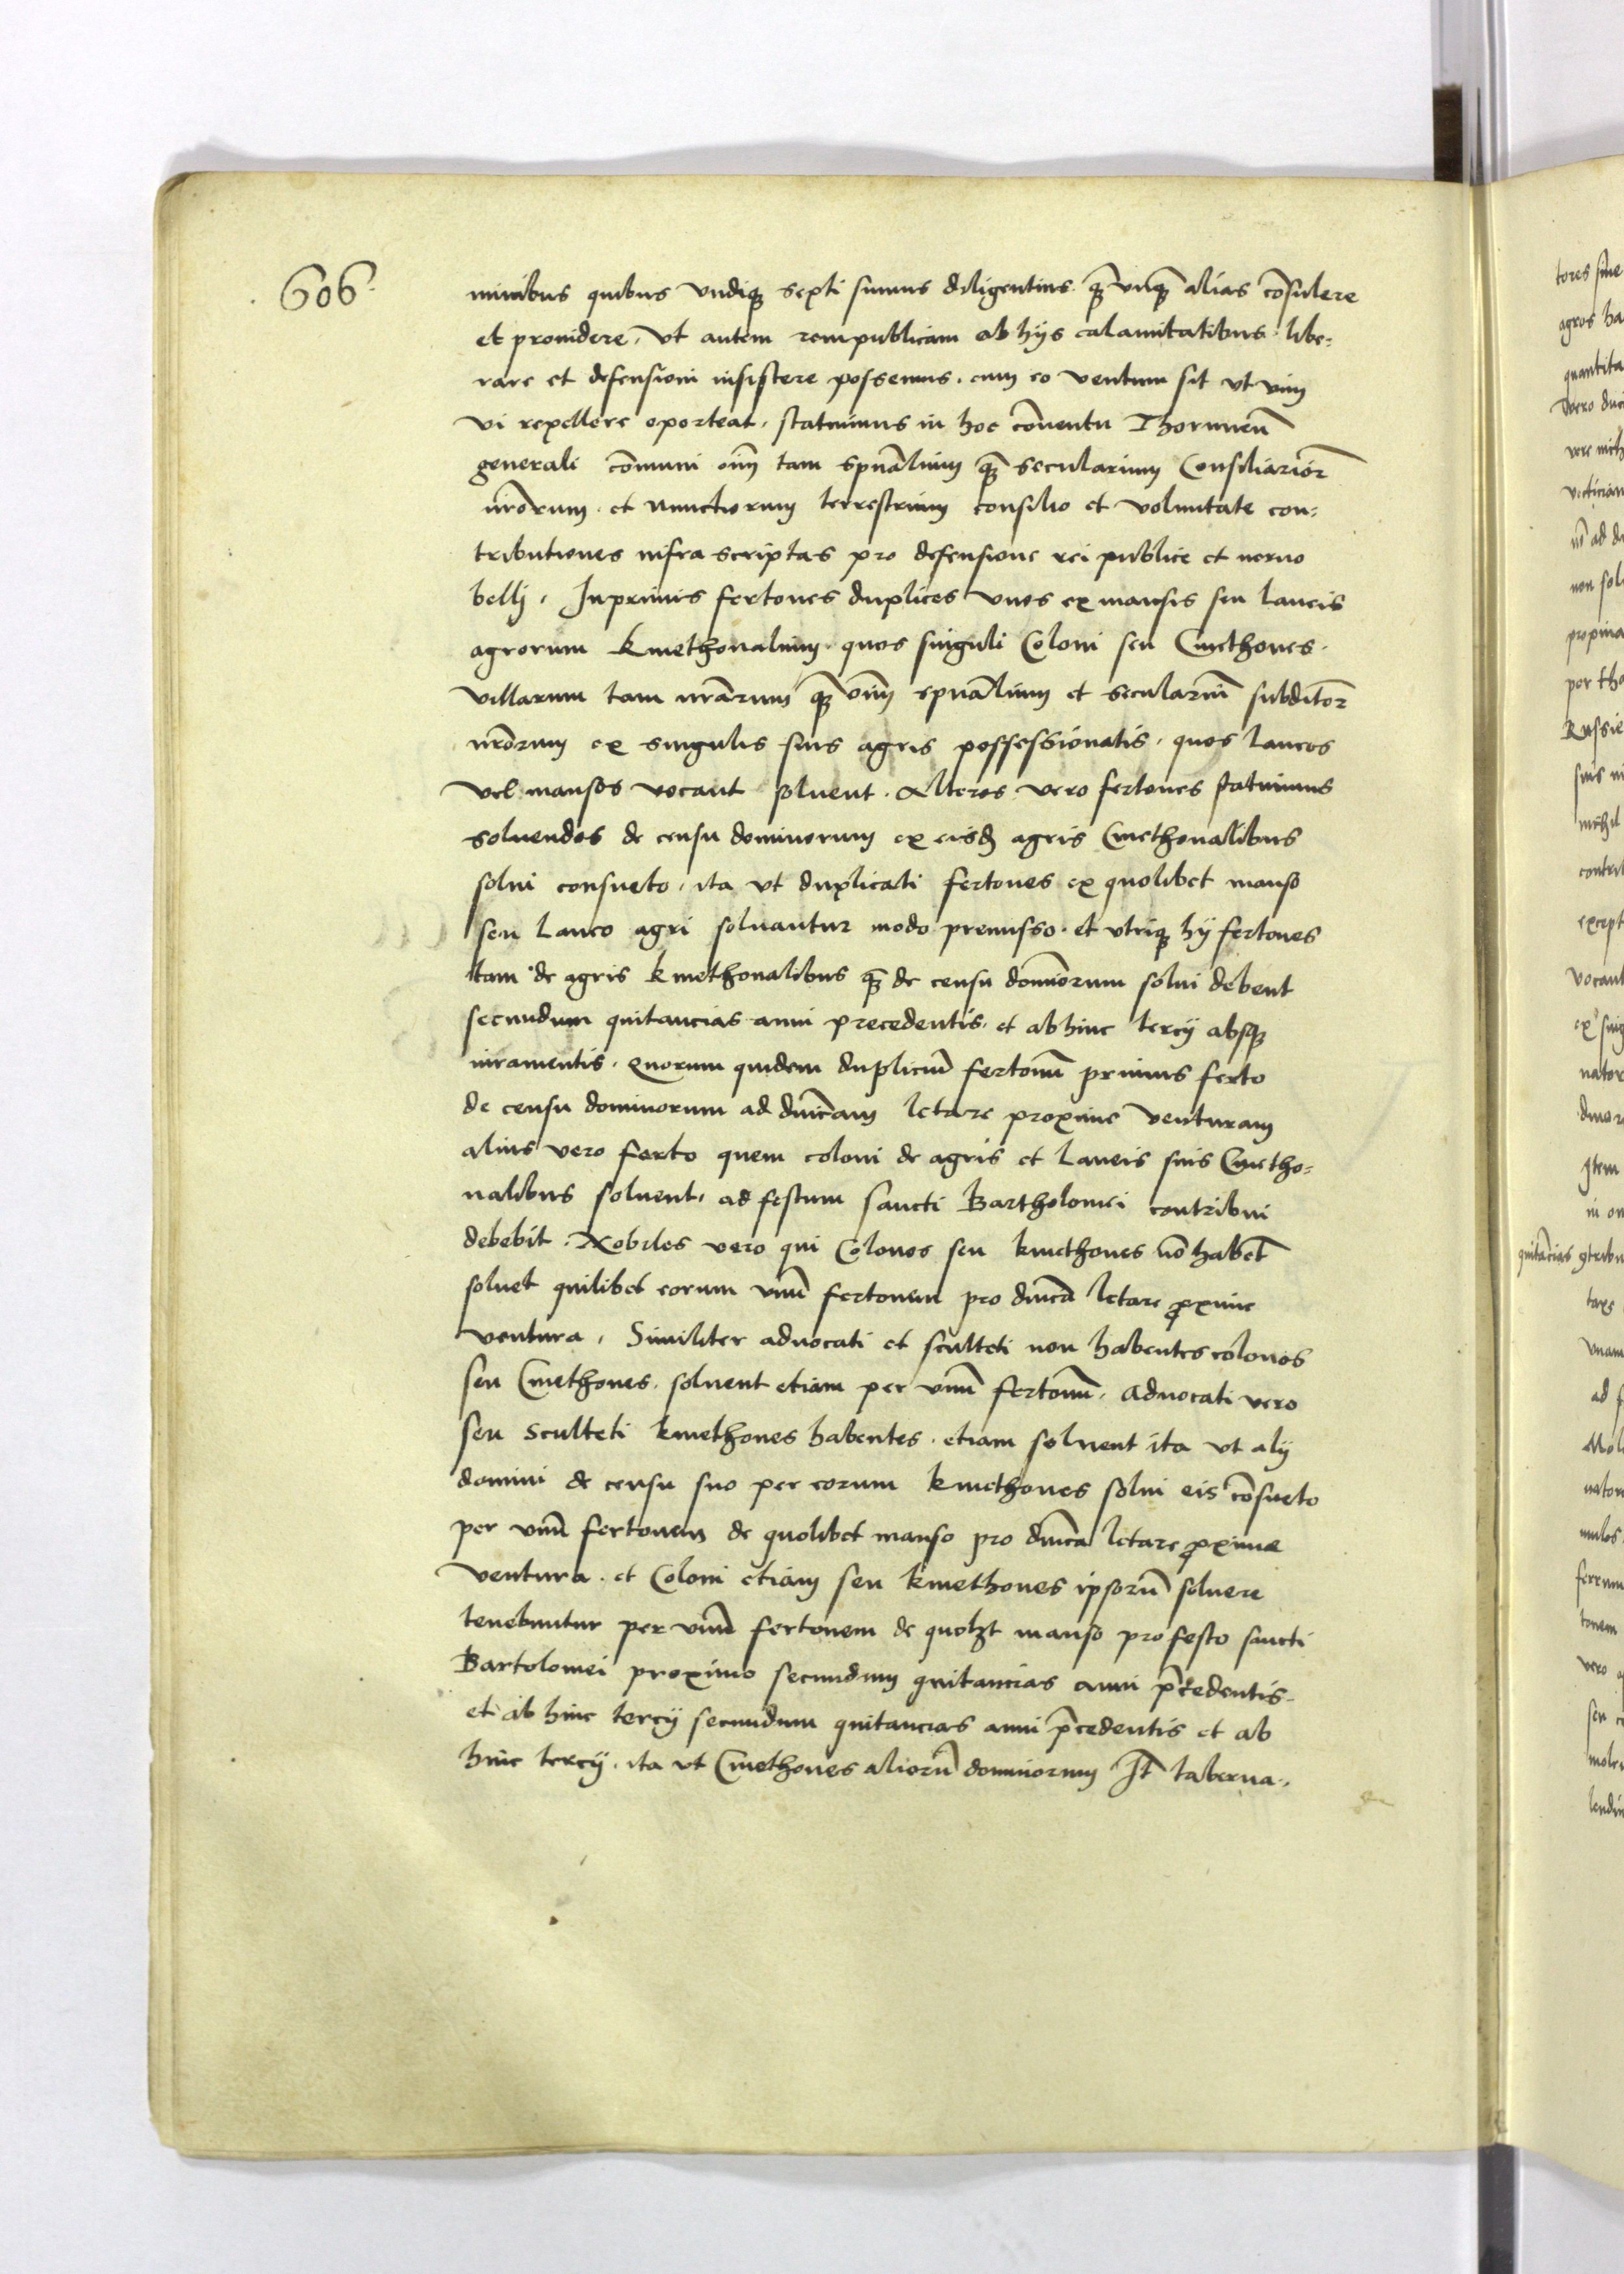 606
minibus quibus vndiqȝ septi sumus diligentius qȝ̄ vnqȝ̄ alias cōsulere
et prouidere, vt autem rempublicam ab hijs calamitatibus libe-
rare et defensioni insistere possemus, cum eo ventum sit vt vim
vi repellere oporteat, statuimus in hoc cōuentu Thorunień
generali cōmuni om̄ tam spūalium qȝ̄ secularium Consiliarior̄
nr̄orum et Nunctiorum terrestrium consilio et voluntate con-
tributiones infra scriptas pro defensione rei publice et neruo
bellj, Inprimis fertones duplices vnos ex mansis seu laneis
agrorum kmethonalium, quos singuli Coloni seu Cmethones
villarum tam nr̄arum qȝ̄ om̄ spūalium et seculariū subditor̄
nr̄orum ex singulis suis agris possessionatis, quos laneos
vel mansos vocant soluent. Alteros vero fertones statuimus
soluendos de censu dominorum ex eisdē agris Cmethonalibus
solui consueto, ita vt duplicati fertones ex quolibet manso
seu laneo agri soluantur modo premisso et vtriqȝ hij fertones
tam de agris kmethonalibus qȝ̄ de censu domīorum solui debent
secundum quitancias anni precedentis, et abhinc tercij absqȝ
iuramentis. Quorum quidem dupliciū fertonū primus ferto
de censu dominorum ad dn̄icam letare proxime venturam
alius vero ferto quem coloni de agris et laneis suis Cmetho-
nalibus soluent, ad festum sancti Bartholomei contribui
debebit. Nobiles vero qui Colonos seu kmethones nō habēt
soluet quilibet eorum vnū fertonem pro dn̄ica letare proxime
ventura, Similiter aduocati et sculteti non habentes colonos
seu Cmethones, soluent etiam per vnū fertonū, aduocati vero
seu Sculteti kmethones habentes, etiam soluent ita vt alij
domini de censu suo per eorum kmethones solui eis cōsueto
per vnū fertonem de quolibet manso pro dn̄ica letare proxime
ventura, et Coloni etiam seu kmethones ipsorū soluere
tenebuntur per vnū fertonem de quolȝt manso pro festo sancti
Bartolomei proximo secundum quitancias anni p̄cedentis
et ab hinc tercij secundum quitancias anni p̄cedentis et ab
hinc tercij, ita vt Cmethones aliorū dominorum It̄ taberna-